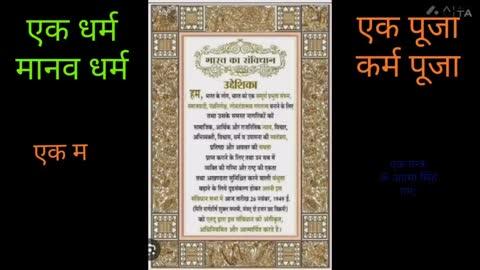 एक धर्म
मानव धर्म
एक म
भारत का संविधान
उद्देशिका
हम, भारत के लोग, भारत को एक सम्पूर्ण प्रभुत्व संपन्न,
समाजवादी, पंथनिरपेक्ष, लोकतंत्रात्मक गणराज्य बनाने के लिए
तथा उसके समस्त नागरिकों को
सामाजिक, आर्थिक और राजनैतिक न्याय, विचार,
अभिव्यक्ति, विश्वास, धर्म व उपासना की स्वतंत्रता,
प्रतिष्ठा और अवसर की समता
प्राप्त कराने के लिए तथा उन सब में
व्यक्ति की गरिमा और राष्ट्र की एकता
तथा अखण्डता सुनिश्चित करने वाली बंधुता
बढ़ाने के लिये दृढ़संकल्प होकर अपनी इस
संविधान सभा में आज तारीख 26 नवंबर, 1949 ई.
को एतद् द्वारा इस संविधान को अंगीकृत,
अधिनियमित और आत्मार्पित करते है।
एक पूजा
कर्म पूजा